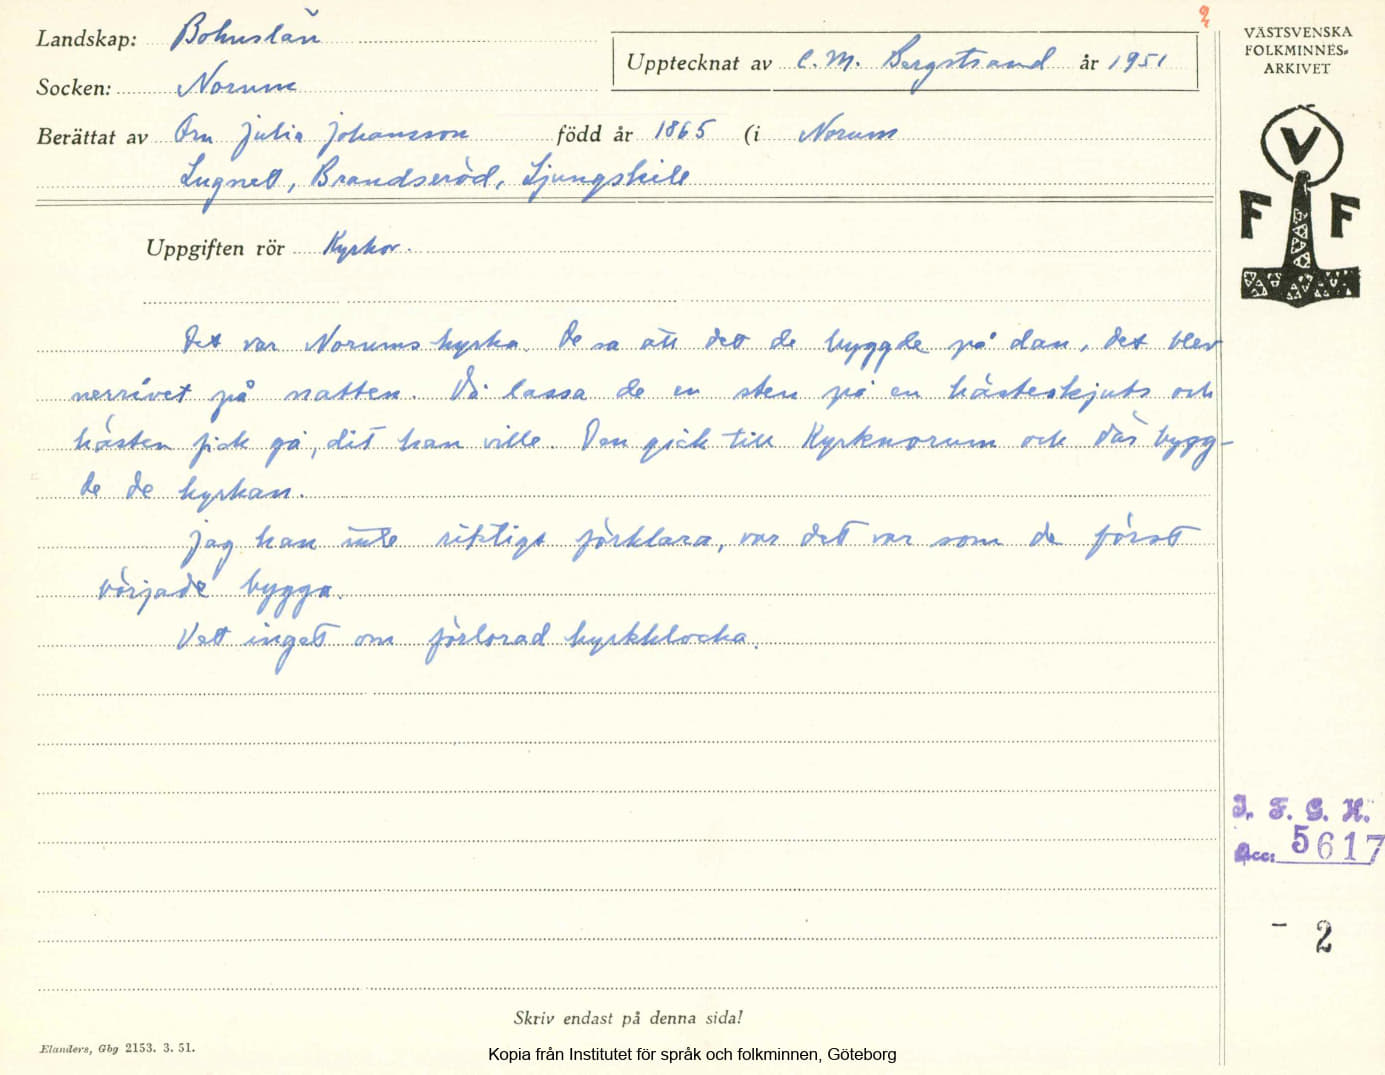 2
Landskap: Bohuslän
Upptecknat av C. M. Bergstrand år 1951
Socken: Norum
Berättat av Fru Julia Johansson född år 1865 (i Norum
Lugnet, Brandseröd, Ljungskile
Uppgiften rör Kyrkor.
Det var Norums kyrka. De sa att det de byggde på dan, det blev
nerrivet på natten. Då lassa de en sten på en hästeskjuts och
hästen fick gå, dit han ville. Den gick till Kyrknorum och där bygg-
de de kyrkan.
Jag kan inte riktigt förklara, var det var som de först
började bygga.
Vet inget om förlorad kyrkklocka.
VÄSTSVENSKA
FOLKMINNES-
ARKIVET
V
F F
I. F. G. H.
Acc: 5617
- 2
Skriv endast på denna sida!
Elanders, Gbg 2153. 3. 51.
Kopia från Institutet för språk och folkminnen, Göteborg